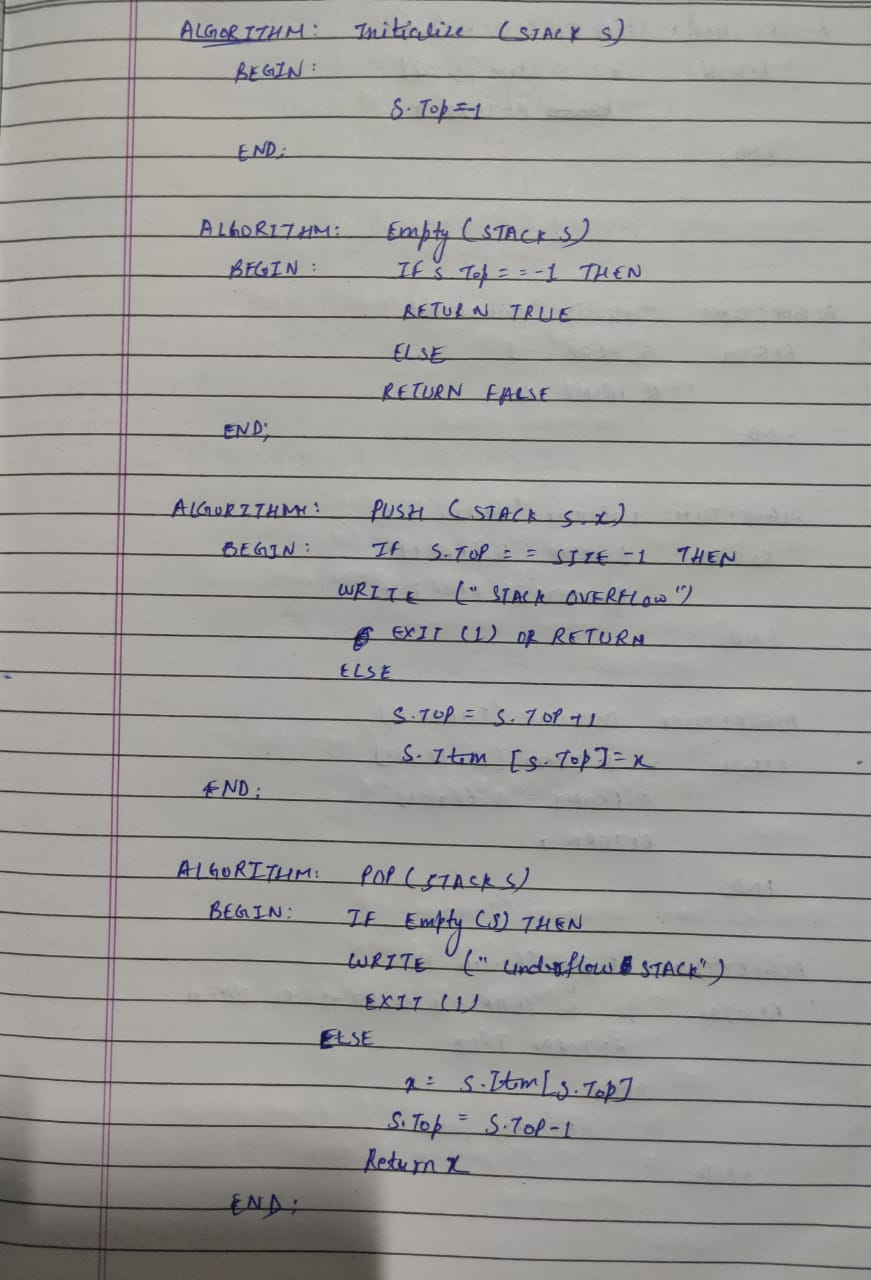 ALGORITHM: Initialize (STACK S)
BEGIN:
S.Top=-1
END;
ALGORITHM: Empty (STACK S)
BEGIN: IF S Top==-1 THEN
RETURN TRUE
ELSE
RETURN FALSE
END;
ALGORITHM: PUSH (STACK S.x)
BEGIN: IF S.TOP == SIZE -1 THEN
WRITE (" STACK OVERFLOW")
EXIT (1) OR RETURN
ELSE
S.TOP = S.TOP +1
S.Itm [S.Top]=x
END;
ALGORITHM: POP (STACK S)
BEGIN: IF Empty (S) THEN
WRITE (" Underflow STACK")
EXIT (1)
ELSE
x = S.Itm[S.Top]
S.Top = S.TOP-1
Return x
END;